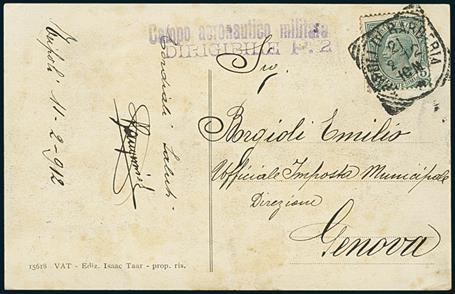 Campo aeronautico militare
DIRIGIBILE P. 2
TRIPOLI DI BARBERIA
Tripoli 11-2-912
Cordiali Saluti
Sig.
Borgioli Emilio
Ufficiale Imposte Municipale
Direzione
Genova
15618 VAT - Ediz. Isaac Taar - prop. ris.